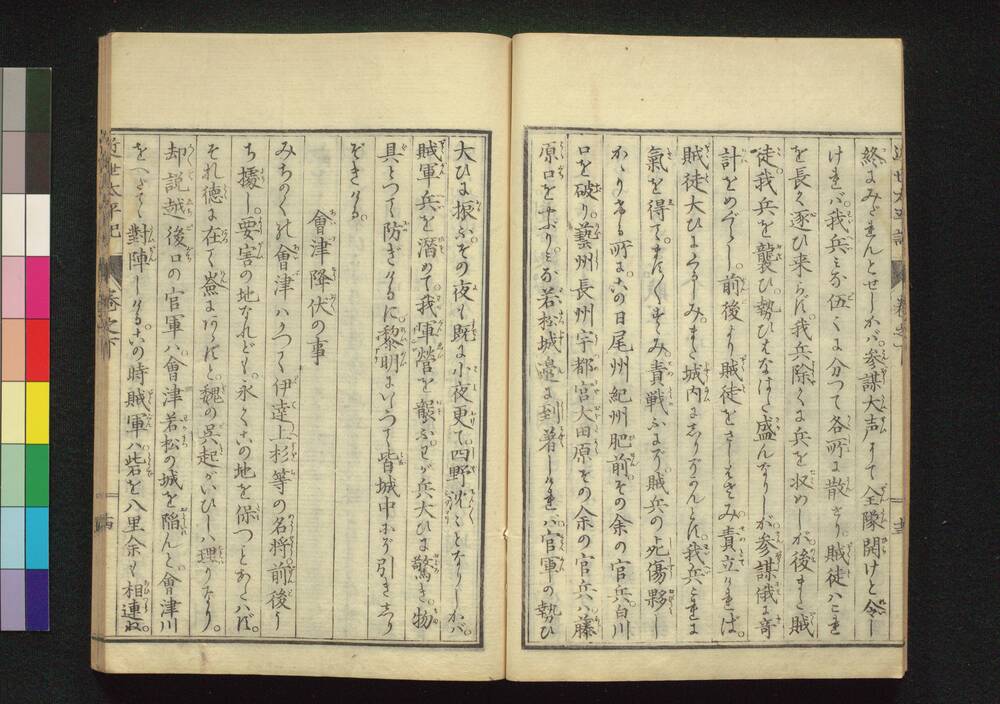 終にみだれんとせしかバ。参謀大声にて全隊開けと令し
けれバ。我兵ミな伍々に分つて各所に散ぜり。賊徒ハこれ
を長く逐ひ来らバ。我兵除々に兵を収めしが後また賊
徒我兵を襲ひ。勢ひはなはだ盛んなりしが。参謀俄に奇
計をめぐらし。前後より賊徒をさしはさみ責立けれバ。
賊徒大ひにくるしみ。また城内にしりぞかんとす。我兵これに
氣を得て。ますます進み責戦ふまゝ。賊兵の死傷夥し
かゝりける所に。この日尾州紀州肥前その余の官兵。白川
口を破り。藝州長州宇都宮大田原その余の官兵ハ。藤
原口をやぶり。ミな若松城邉に到着しけれバ。官軍の勢ひ
大ひに振ふ。その夜も既に小夜更て。四野沈々となりしかバ。
賊軍兵を潜めて。我陣営を襲ふ。せが兵大ひに驚き。物
具とつて防ぎけるに。黎明にいたりて皆城中にぞ引きしり
ぞきける。
會津降伏の事
みちのくの會津ハ。かつて伊達上杉等の名将。前後う
ち據し。要害の地なれども。永くこの地を保つことあたハず。
それ徳に在て嶮にあらずと。魏の呉起がいひしハ理りなり。
却説越後口の官軍ハ。會津若松の城を陥んと。會津川
をへだてゝ對陣しける。この時賊軍ハ砦を八里余も相連ね。
近世太平記
巻之
十四
巻之
十三